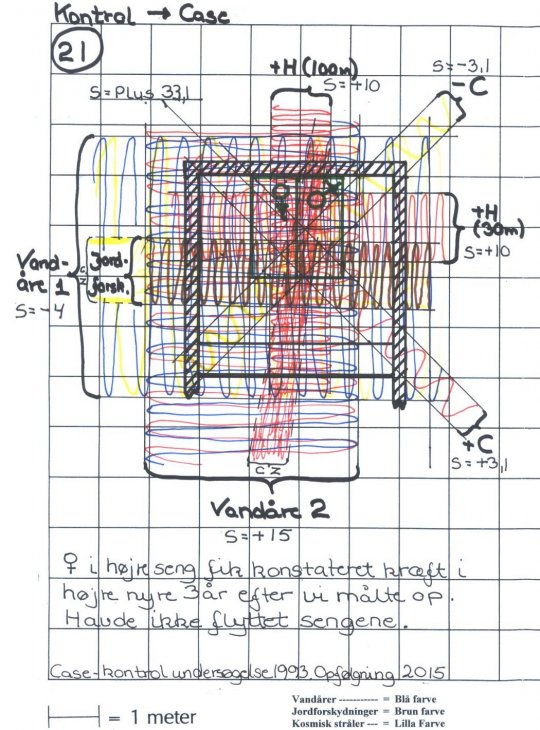 Kontrol → Case
21
+H (100m)
S=+10
S=-3,1
-C
S=Plus 33,1
+H
(30m)
S=+10
Vand-
åre 1
S=-4
Jord-
forsk.
CZ
+C
S=+3,1
CZ
Vandåre 2
S=+15
♀ i højre seng fik konstateret kræft i
højre nyre 3 år efter vi målte op.
Havde ikke flyttet sengene.
Case-kontrol undersøgelse 1993. Opfølgning 2015
= 1 meter
Vandårer ----------- = Blå farve
Jordforskydninger = Brun farve
Kosmisk stråler --- = Lilla Farve